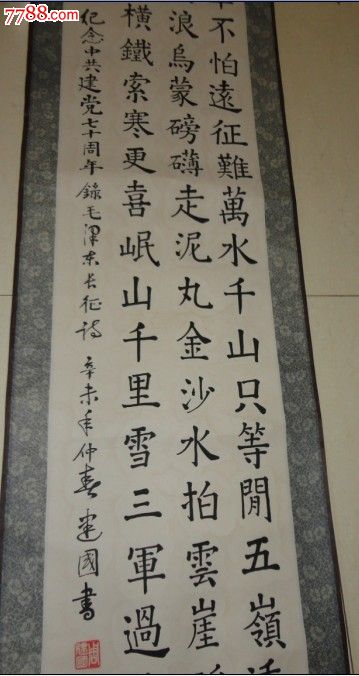 7788.com
不怕遠征難萬水千山只等閒五嶺
浪烏蒙磅礴走泥丸金沙水拍雲崖
橫鐵索寒更喜岷山千里雪三軍過
纪念中共建党七十周年錄毛澤东长征诗 辛未年仲春建國書